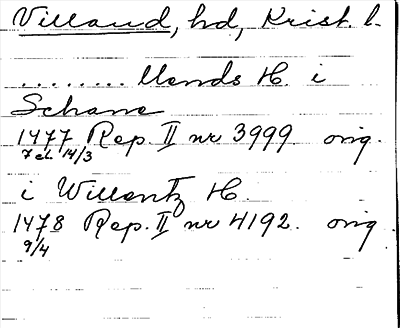 Villand, hd, Krist. l.
........ llands H. i
Schane
1477 Rep. II nr 3999 orig.
7 el. 14/3
i Willentz H.
1478 Rep. II nr 4192. orig.
9/4